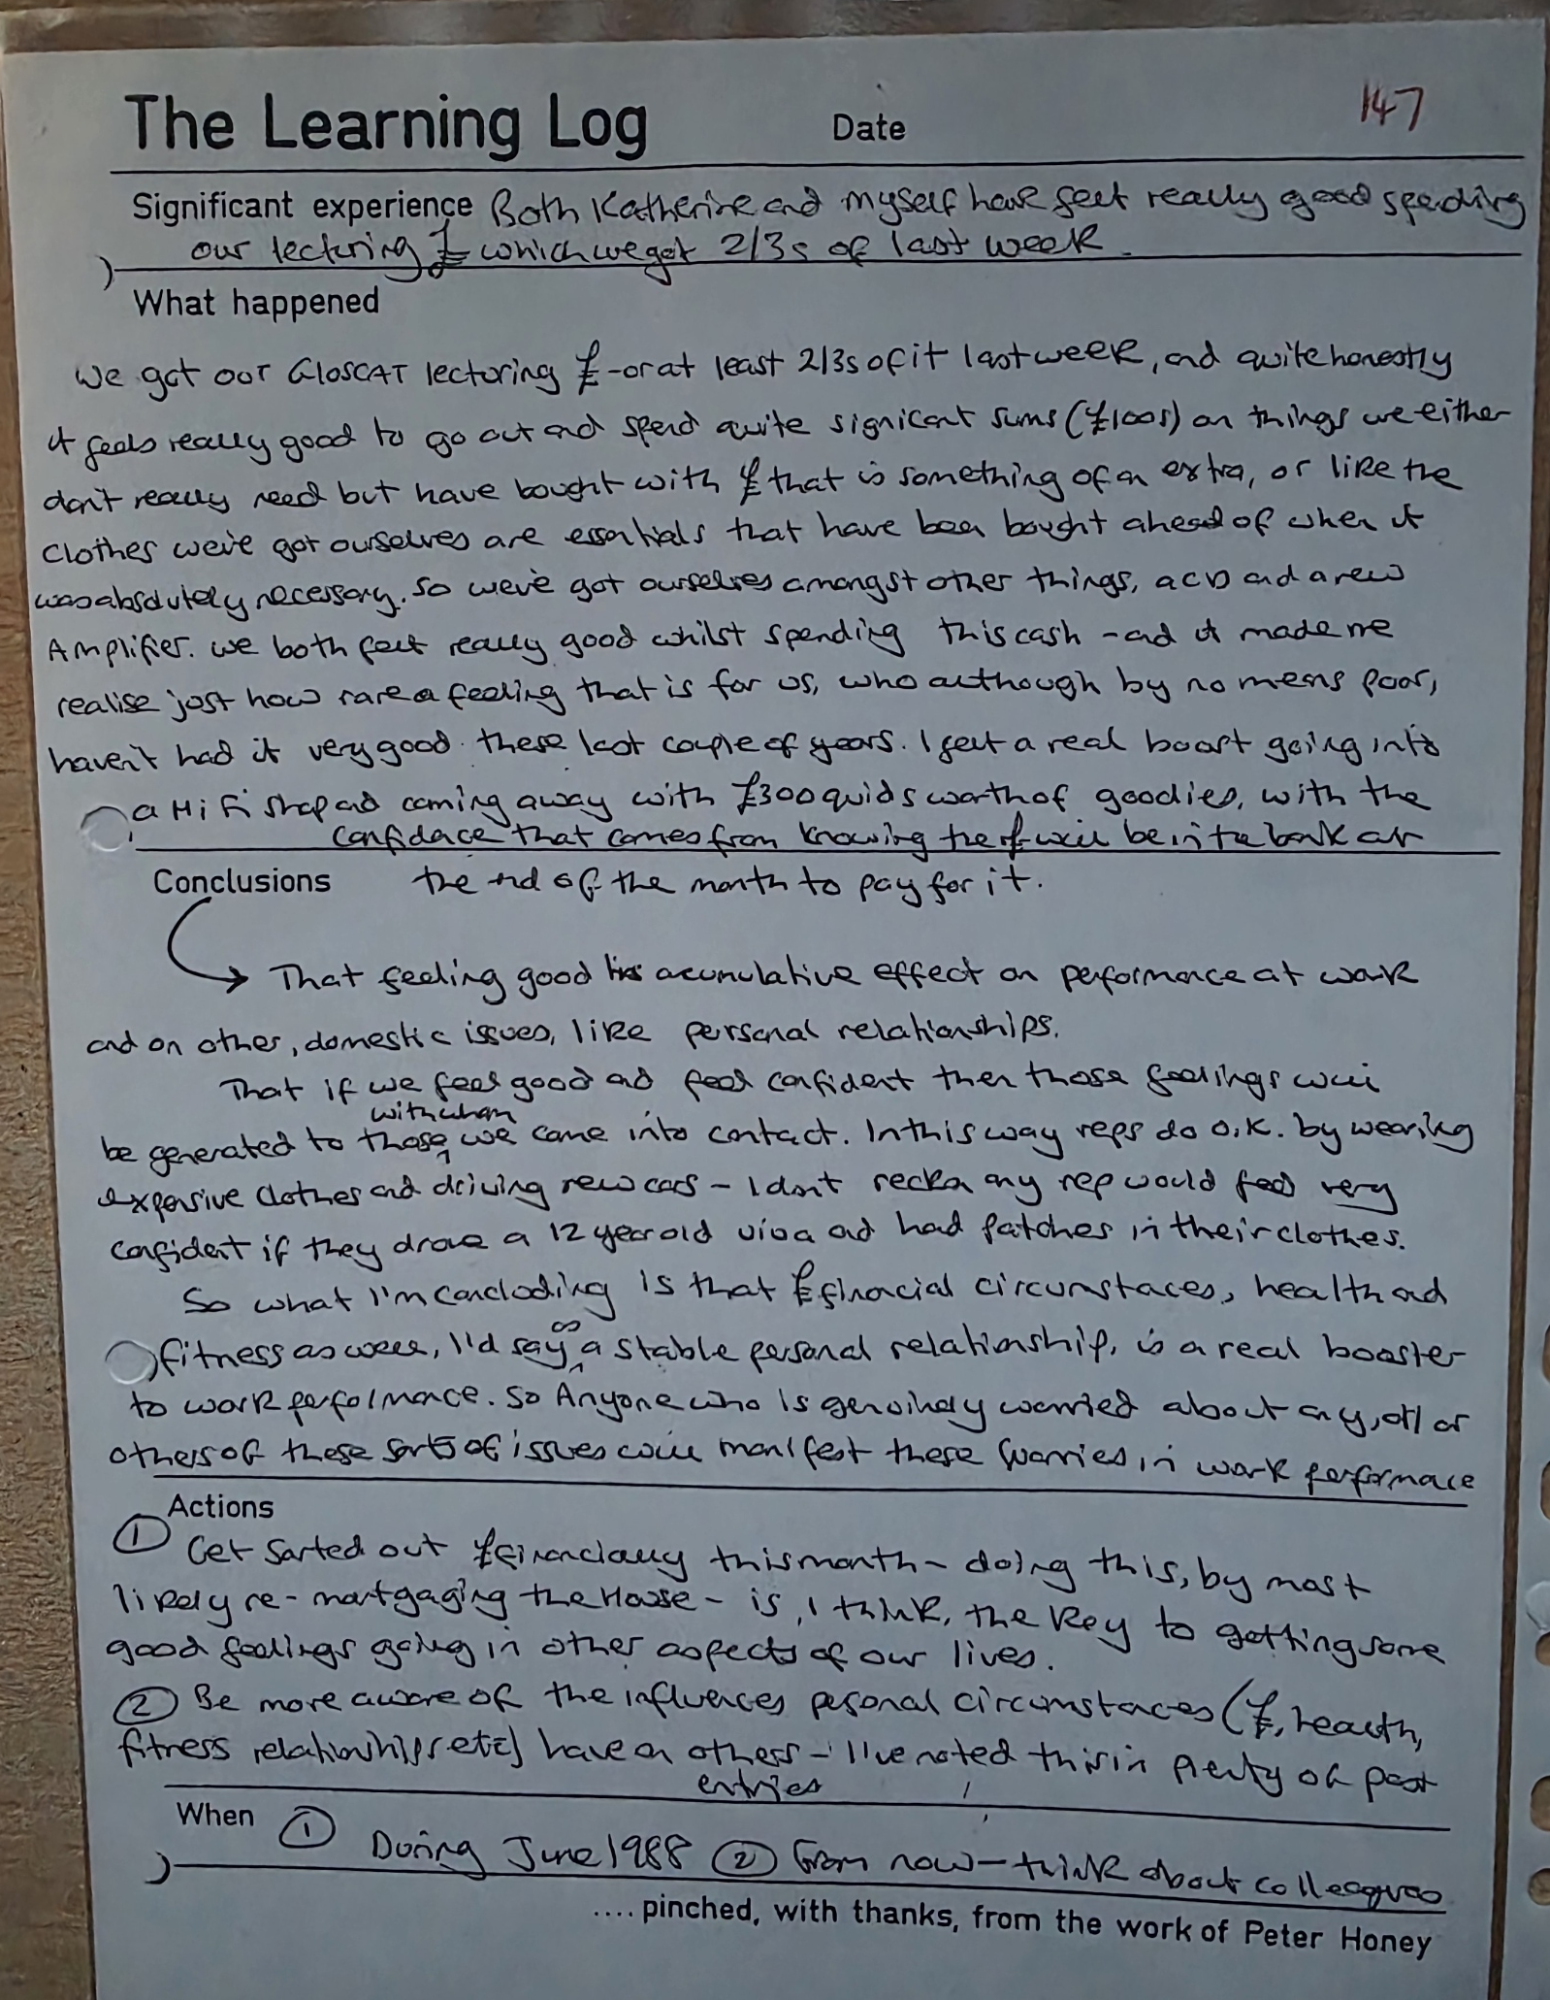 The Learning Log Date 147
Significant experience Both Katherine and myself have felt really good spending
our lecturing £ which we got 2/3s of last week.
What happened
We got our GLOSCAT lecturing £ - or at least 2/3s of it last week, and quite honestly
it feels really good to go out and spend quite signicant sums (£100s) on things we either
don't really need but have bought with £ that is something of an extra, or like the
clothes we've got ourselves are essentials that have been bought ahead of when it
was absolutely necessary. So we've got ourselves amongst other things, a CD and a new
Amplifier. We both felt really good whilst spending this cash - and it made me
realise just how rare a feeling that is for us, who although by no means poor,
haven't had it very good these last couple of years. I felt a real boost going into
a HiFi shop and coming away with £300 quids worth of goodies, with the
confidence that comes from knowing the £ will be in the bank at
Conclusions the end of the month to pay for it.
→ That feeling good has acumulative effect on performance at work
and on other, domestic issues, like personal relationships.
That if we feel good and feel confident then those feelings will
with whom
be generated to those we come into contact. In this way reps do O.K. by wearing
expensive clothes and driving new cars - I don't reckon any rep would feel very
confident if they drove a 12 year old viva and had patches in their clothes.
So what I'm concluding is that £ financial circumstances, health and
fitness as well, I'd say a stable personal relationship, is a real booster
to work performance. So Anyone who is genuinely worried about any, all or
others of these sorts of issues will manifest these worries in work performance
Actions
① Get sorted out £ financially this month - doing this, by most
likely re-mortgaging the House - is, I think, the key to getting some
good feelings going in other aspects of our lives.
② Be more aware of the influences personal circumstances (£, health,
fitness relationships etc) have on others - I've noted this in plenty of past
entries
When ① During June 1988 ② From now - think about colleagues
.... pinched, with thanks, from the work of Peter Honey